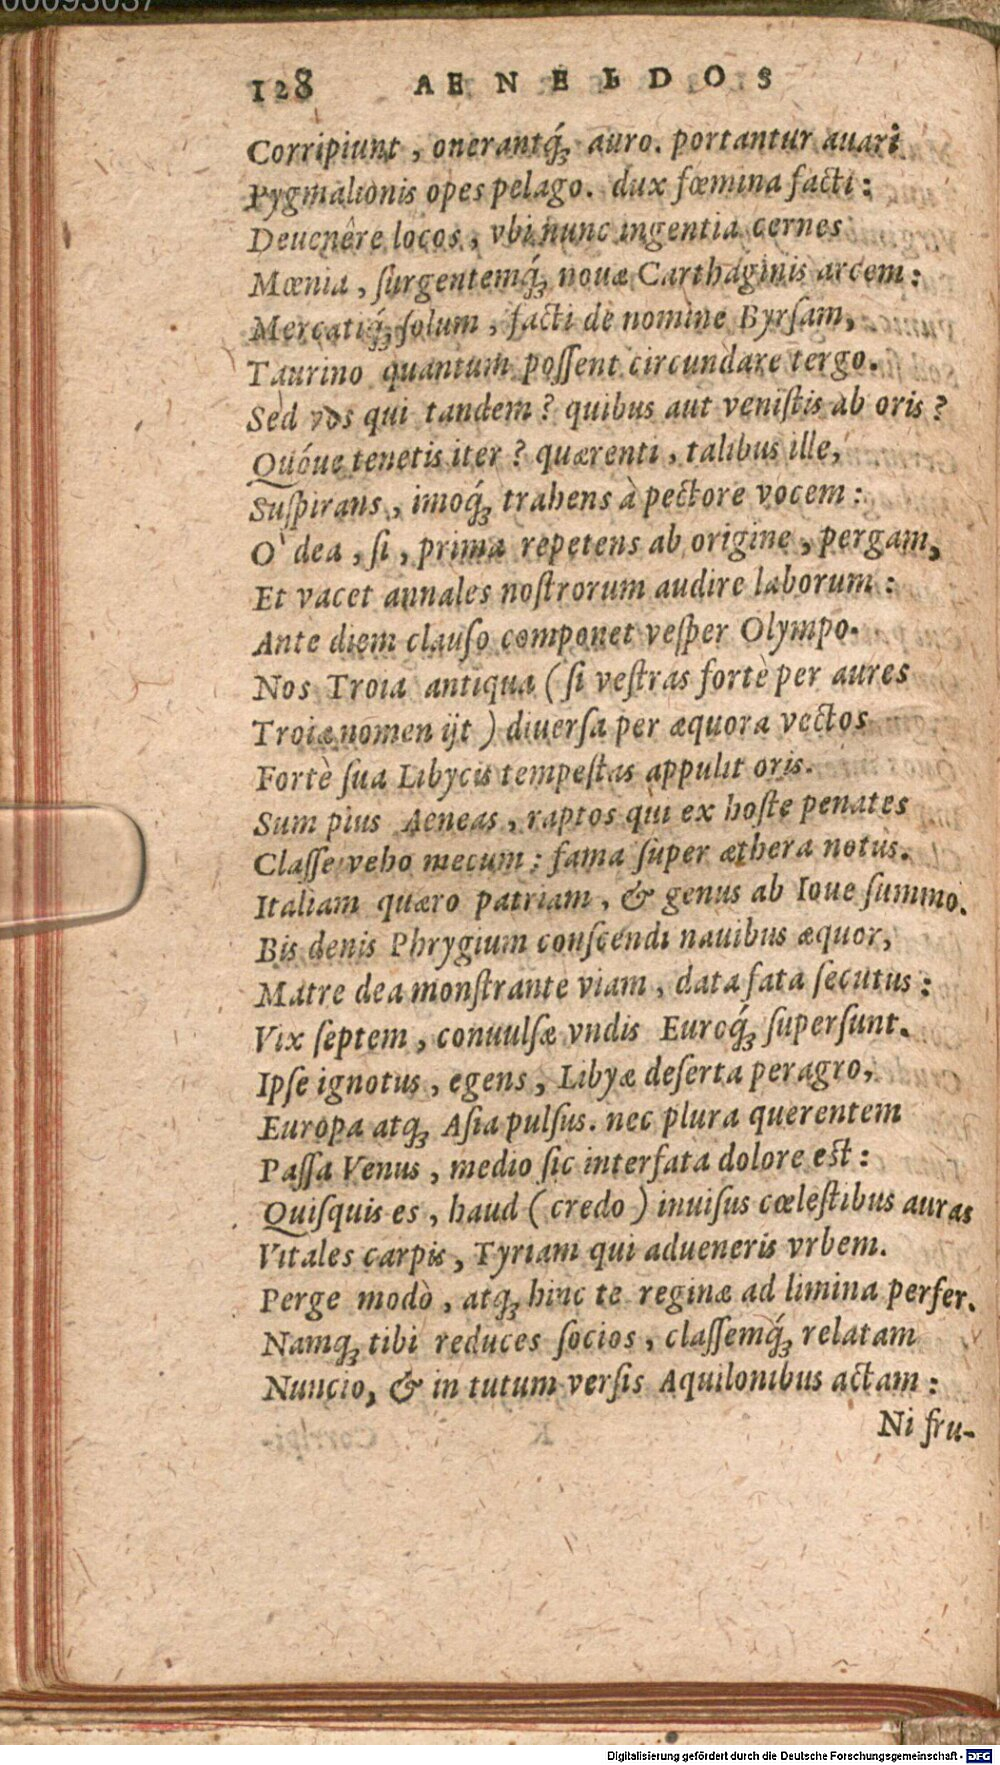 00093037
128 AENEIDOS
Corripiunt, onerantq́ꝫ auro. portantur auari
Pygmalionis opes pelago. dux fœmina facti:
Deuenêre locos, vbi nunc ingentia cernes
Mœnia, ſurgentemq́ꝫ nouæ Carthaginis arcem:
Mercatiq́ꝫ ſolum, facti de nomine Byrſam,
Taurino quantum poſſent circundare tergo.
Sed vos qui tandem? quibus aut veniſtis ab oris?
Quóue tenetis iter? quærenti, talibus ille,
Suſpirans, imoq́ꝫ trahens à pectore vocem:
O' dea, ſi, prima repetens ab origine, pergam,
Et vacet annales noſtrorum audire laborum:
Ante diem clauſo componet veſper Olympo.
Nos Troia antiqua (ſi veſtras fortè per aures
Troiæ nomen ijt) diuerſa per æquora vectos
Fortè ſua Libycis tempeſtas appulit oris.
Sum pius Aeneas, raptos qui ex hoſte penates
Claſſe veho mecum: fama ſuper æthera notus.
Italiam quæro patriam, & genus ab Ioue ſummo.
Bis denis Phrygium conſcendi nauibus æquor,
Matre dea monſtrante viam, data fata ſecutus:
Vix ſeptem, conuulſæ vndis Euroq́ꝫ ſuperſunt.
Ipſe ignotus, egens, Libyæ deſerta peragro,
Europa atqꝫ Aſia pulſus. nec plura querentem
Paſſa Venus, medio ſic interfata dolore eſt:
Quiſquis es, haud (credo) inuiſus cœleſtibus auras
Vitales carpis, Tyriam qui adueneris vrbem.
Perge modò, atqꝫ hinc te reginæ ad limina perfer.
Namqꝫ tibi reduces ſocios, claſſemq́ꝫ relatam
Nuncio, & in tutum verſis Aquilonibus actam:
Ni fru-
Digitalisierung gefördert durch die Deutsche Forschungsgemeinschaft - DFG